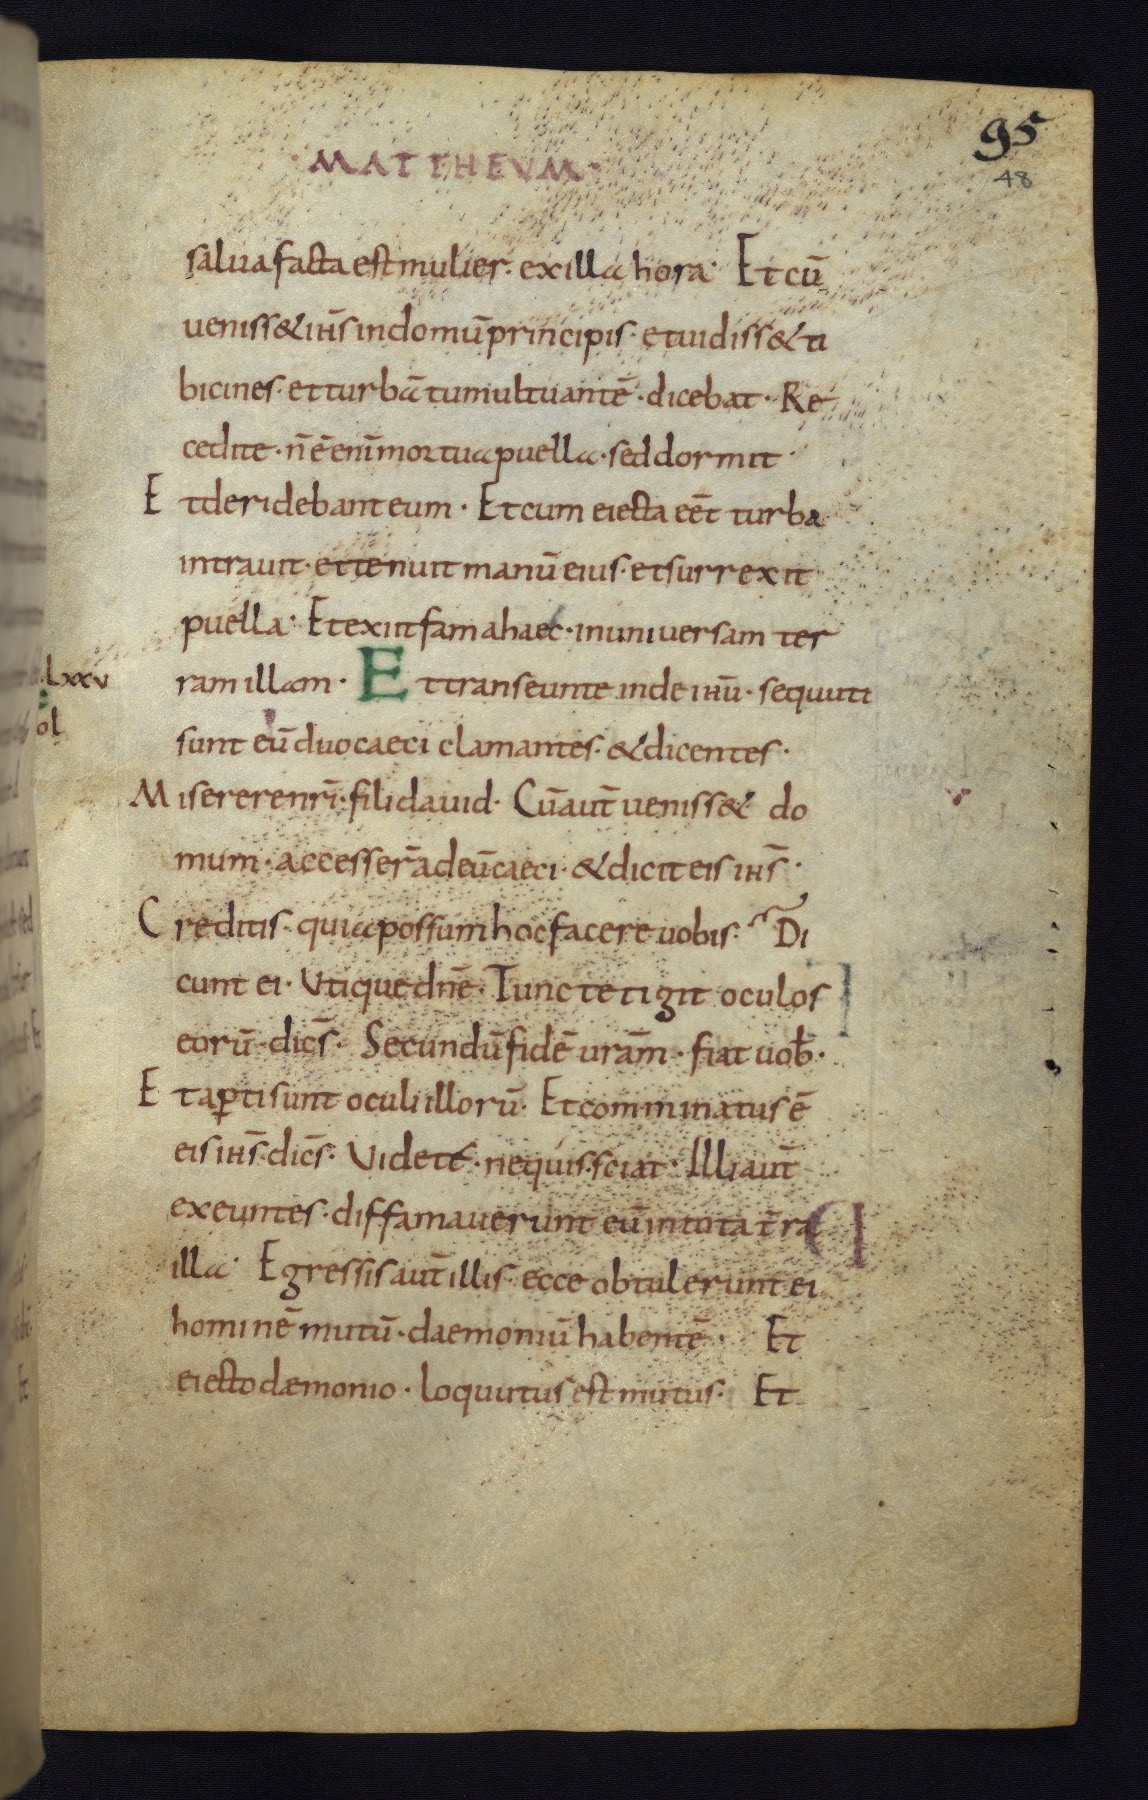 95
48
·MATTHEVM·
salua facta est mulier· ex illa hora· Et cū
ueniss& ih̄s in domū principis· et uidiss& ti
bicines· et turbā tumultuantē· dicebat· Re
cedite· n̄ ē enī mortua puella· sed dormit·
Et deridebant eum· Et cum eiecta eēt turba
intrauit· et tenuit manū eius· et surrexit
puella· Et exiit fama haec· in uniuersam ter
Lxxv
ram illam· Et transeunte inde ihū· sequuti
ol
sunt eū duo caeci clamantes· &dicentes·
Miserere nr̄i· fili dauid· Cū aut̄ ueniss& do
mum· accesser̄ ad eū caeci· &dicit eis ih̄s·
Creditis· quia possum hoc facere uobis· Di
cunt ei· Utique dn̄e· Tunc tetigit oculos
eorū· dic̄s· Secundū fidē ur̄am· fiat uob̄·
Et ap̄ti sunt oculi illorū· Et comminatus ē
eis ih̄s· dic̄s· Uidete· ne quis sciat· Illi aut̄
exeuntes· diffamauerunt eū in tota t̄ra
illa· Egressis aut̄ illis· ecce obtulerunt ei
hominē mutū· daemoniū habentē· Et
eiecto dæmonio· loquutus est mutus· Et